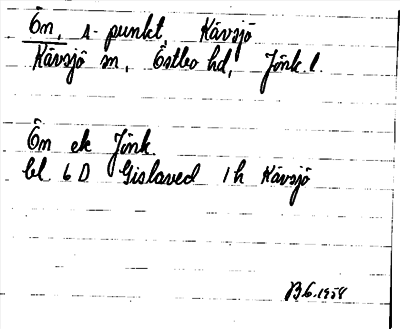 Ön, s-punkt, Kävsjö
Kävsjö sn, Östbo hd, Jönk. l.
Ön ek Jönk
bl 6 D Gislaved 1 h Kävsjö
B.G. 1958